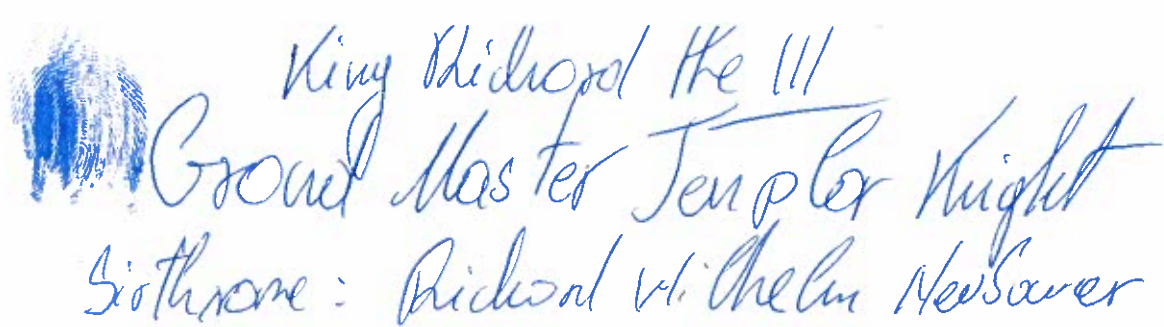 King Richard the III
Grand Master Templar Knight
Birthname: Richard Wilhelm